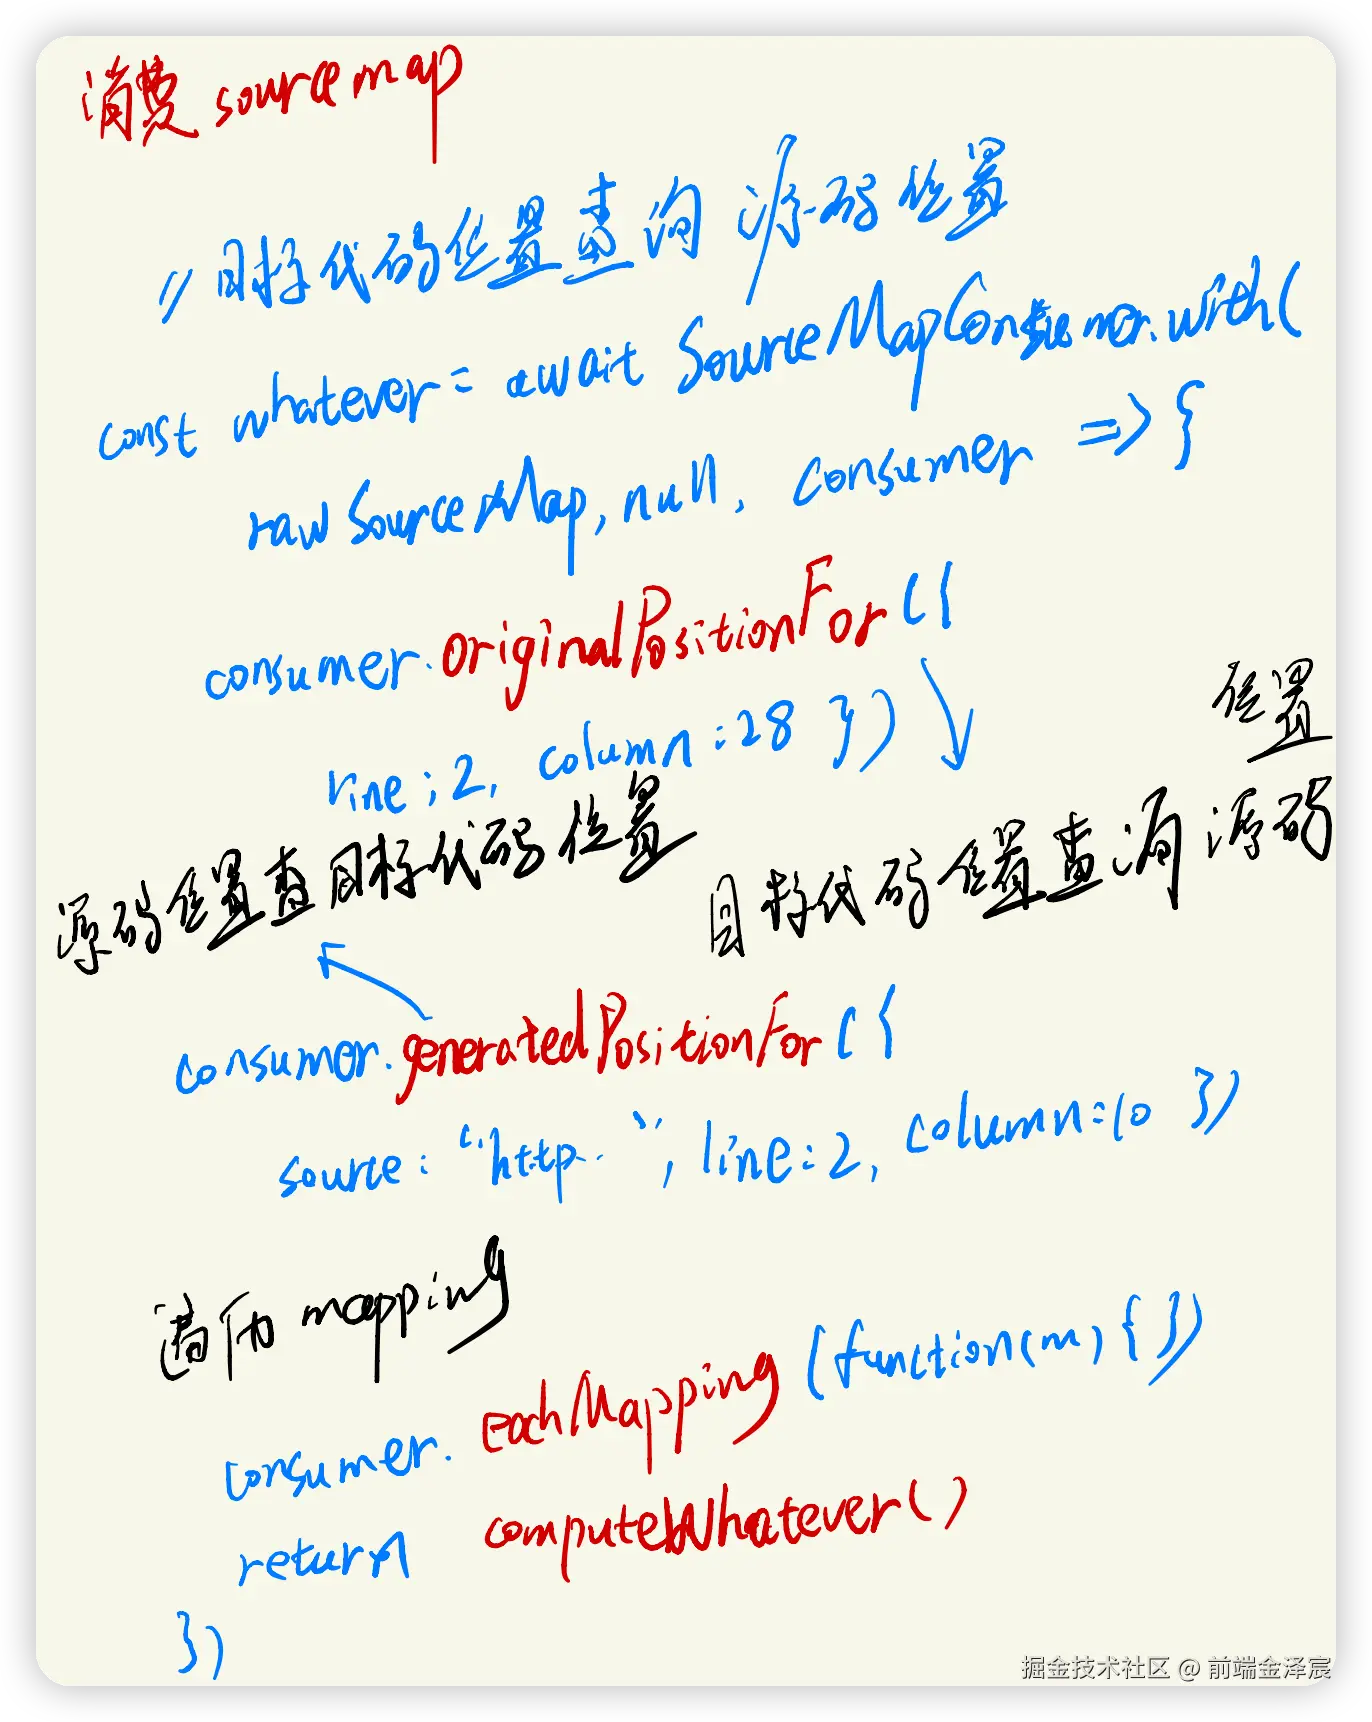 消费 sourcemap
// 目标代码位置查询 源码位置
const whatever = await SourceMapConsumer.with(
rawSourceMap, null, consumer => {
consumer.originalPositionFor({
line: 2, column: 28 })
位置
源码位置查目标代码位置
目标代码位置查询 源码
consumer.generatedPositionFor({
source: "http..", line: 2, column: 10 })
遍历 mapping
consumer.eachMapping(function(m) { })
return computeWhatever()
})
掘金技术社区 @ 前端金泽宸